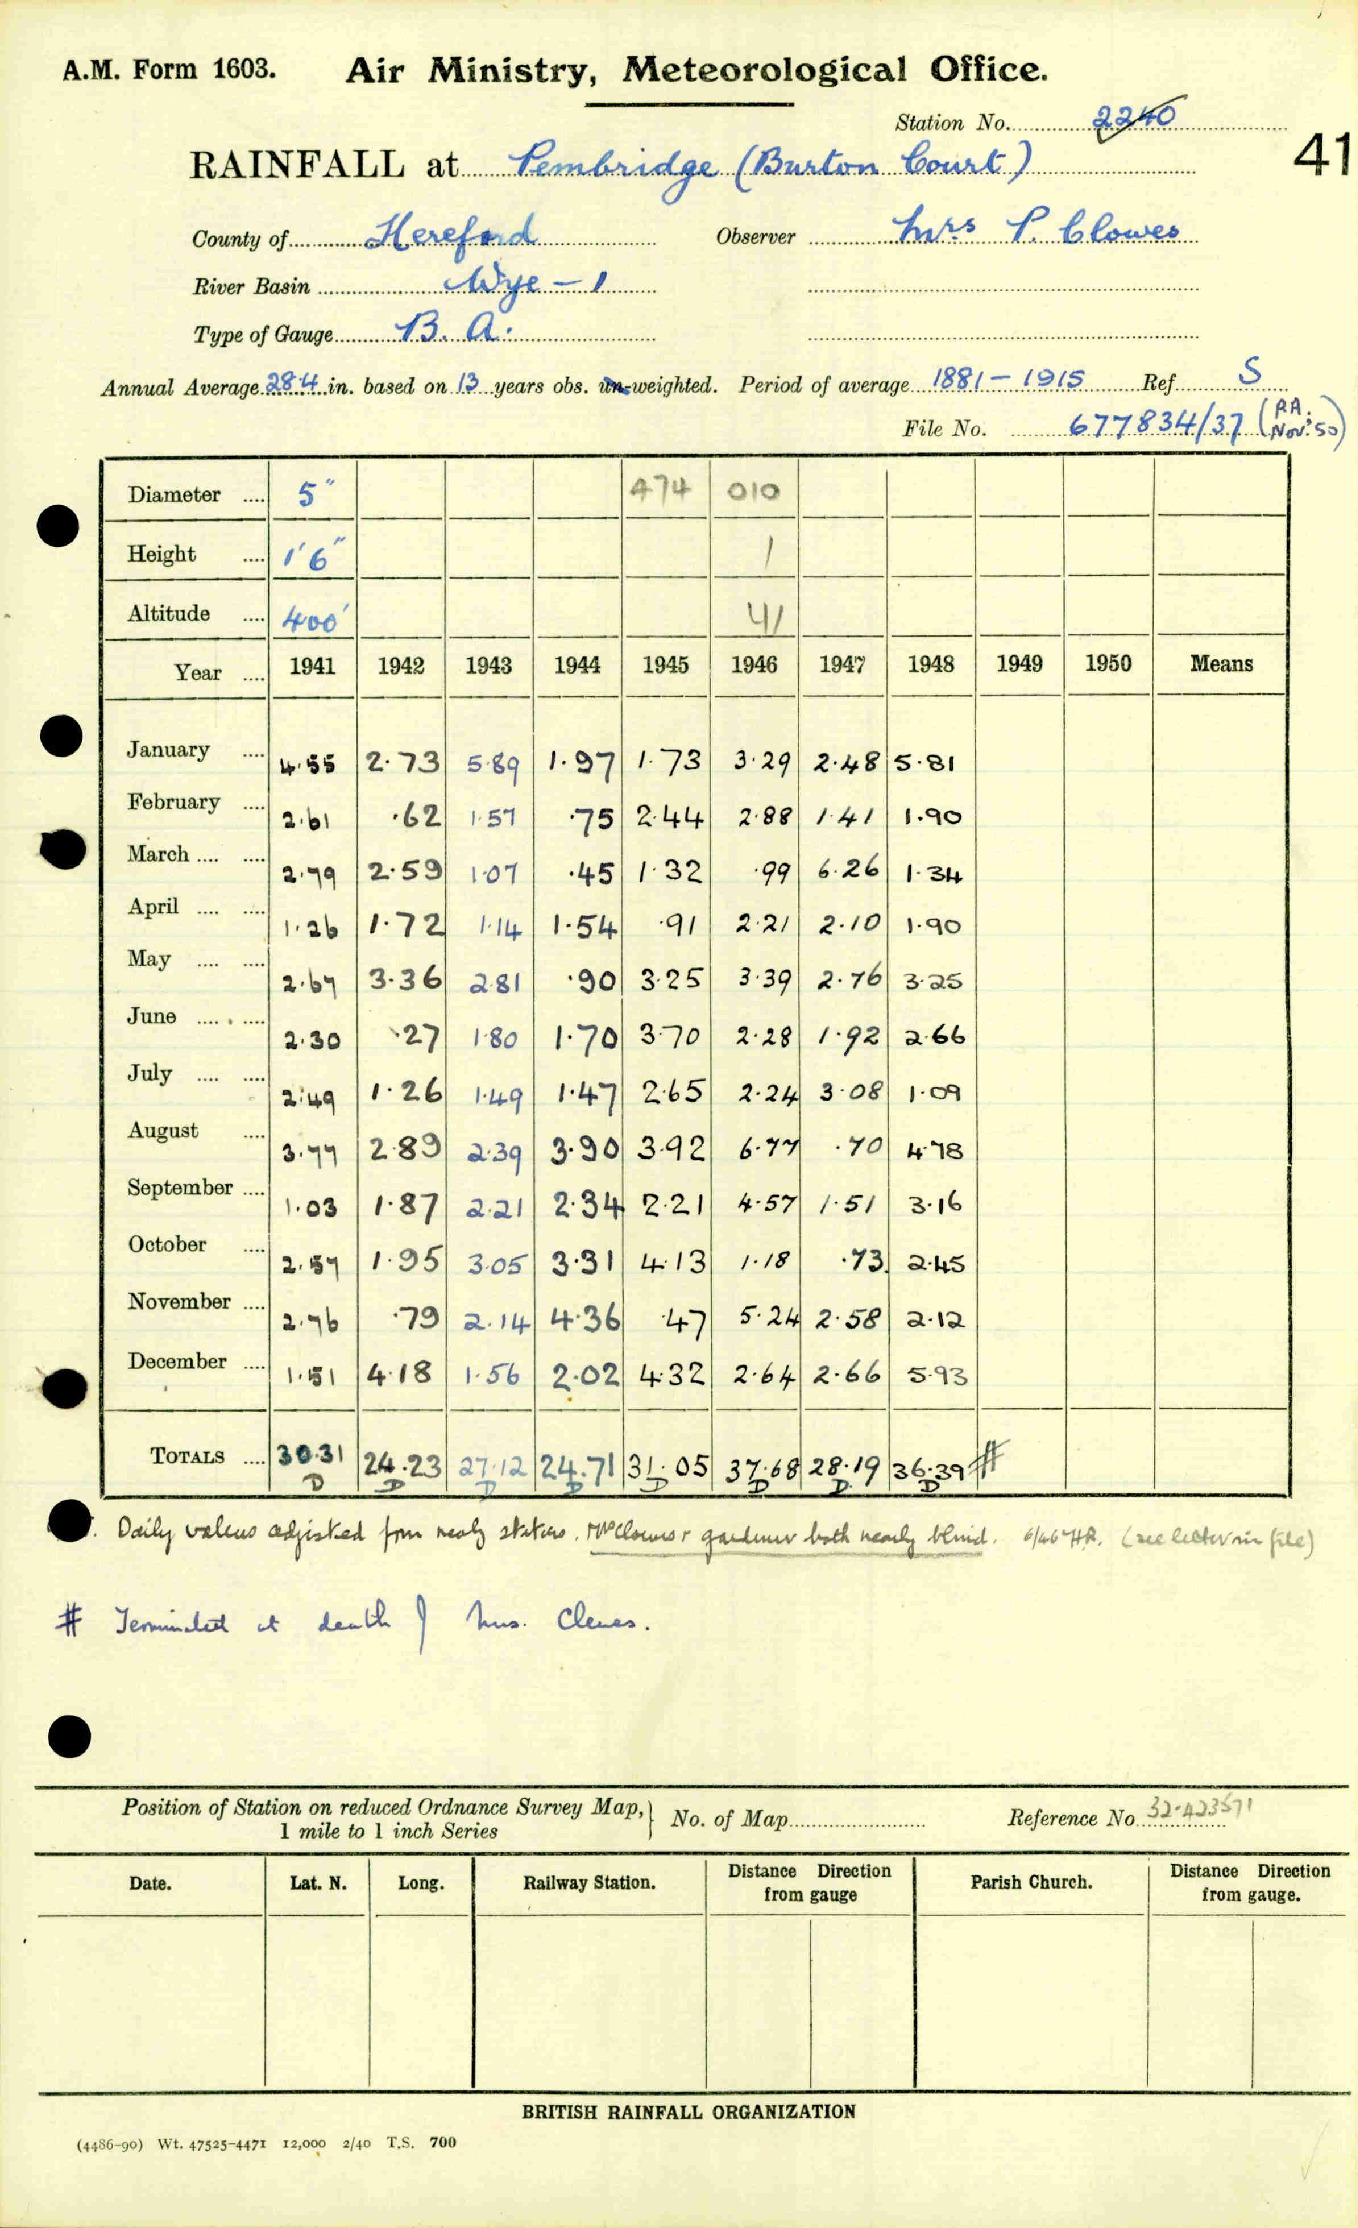 A.M. Form 1603. Air Ministry, Meteorological Office.
Station No. 2240
41
RAINFALL at Pembridge (Burton Court)
County of Hereford Observer Mrs P. Clowes
River Basin Wye - 1
Type of Gauge B. A.
Annual Average 28.4 in. based on 13 years obs. un-weighted. Period of average 1881 - 1915 Ref. S
File No. 677834/37 (RA. Nov. '50)
Diameter .... 5" 474 010
Height .... 1' 6" 1
Altitude .... 400' 41
Year .... 1941 1942 1943 1944 1945 1946 1947 1948 1949 1950 Means
January .... 4.55 2.73 5.89 1.97 1.73 3.29 2.48 5.81
February .... 2.61 .62 1.57 .75 2.44 2.88 1.41 1.90
March .... .... 2.79 2.59 1.07 .45 1.32 .99 6.26 1.34
April .... .... 1.26 1.72 1.14 1.54 .91 2.21 2.10 1.90
May .... .... 2.67 3.36 2.81 .90 3.25 3.39 2.76 3.25
June .... .... 2.30 .27 1.80 1.70 3.70 2.28 1.92 2.66
July .... .... 2.49 1.26 1.49 1.47 2.65 2.24 3.08 1.09
August .... 3.77 2.89 2.39 3.90 3.92 6.77 .70 4.78
September .... 1.03 1.87 2.21 2.34 2.21 4.57 1.51 3.16
October .... 2.57 1.95 3.05 3.31 4.13 1.18 .73 2.45
November .... 2.76 .79 2.14 4.36 .47 5.24 2.58 2.12
December .... 1.51 4.18 1.56 2.02 4.32 2.64 2.66 5.93
TOTALS .... 30.31 24.23 27.12 24.71 31.05 37.68 28.19 36.39 #
D D D D D D D D
Daily values adjusted from nearby stations. Mrs Clowes & gardener both nearly blind. 6/46 HR. (see letter in file)
# Terminated at death of Mrs. Clowes.
Position of Station on reduced Ordnance Survey Map, 1 mile to 1 inch Series } No. of Map Reference No. 32.423571
Date. Lat. N. Long. Railway Station. Distance Direction from gauge Parish Church. Distance Direction from gauge.
BRITISH RAINFALL ORGANIZATION
(4486-90) Wt. 47525-4471 12,000 2/40 T.S. 700